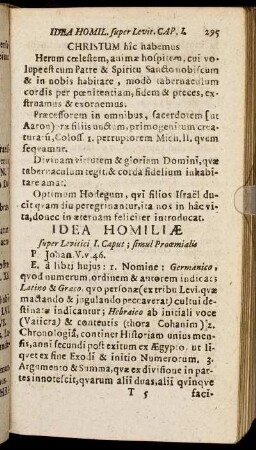 IDEA HOMIL. super Levit. CAP. I. 295
CHRISTUM hîc habemus
Herum cœlestem, animæ hospitem, cui vo-
lupe est cum Patre & Spiritu Sancto nobiscum
& in nobis habitare, modò tabernaculum
cordis per pœnitentiam, fidem & preces, ex-
struamus & exornemus.
Præcessorem in omnibus, sacerdotem [ut
Aaron] præ filiis unctum, primogenium crea-
turæ, Coloss. 1. perruptorem Mich. II. quem
sequamur.
Divinam virtutem & gloriam Domini, quæ
tabernaculum tegit, & corda fidelium inhabi-
tare amat.
Optimum Hodegum, qui filios Israël du-
cit quamdiu peregrinantur, ita nos in hâc vi-
ta, donec in æternam feliciter introducat.
IDEA HOMILIÆ
super Levitici I. Caput; simul Proœmialis
P. Johan. V. v. 46.
E. â libri hujus: 1. Nomine: Germanico,
quod numerum, ordinem & autorem indicat:
Latino & Græco, quo personæ (ex tribu Levi, quæ
mactando & jugulando peccaverat) cultui de-
stinatæ indicantur; Hebraico ab initiali voce
(Vaïicra) & contentis (thora Cohanim) 2.
Chronologiâ, continet Historiam unius men-
sis, anni secundi post exitum ex Ægypto, ut li-
quet ex fine Exodi & initio Numerorum. 3.
Argumento & Summa, quæ ex divisione in par-
tes innotescit, quarum alii duas, alii quinque
T 5 faci-